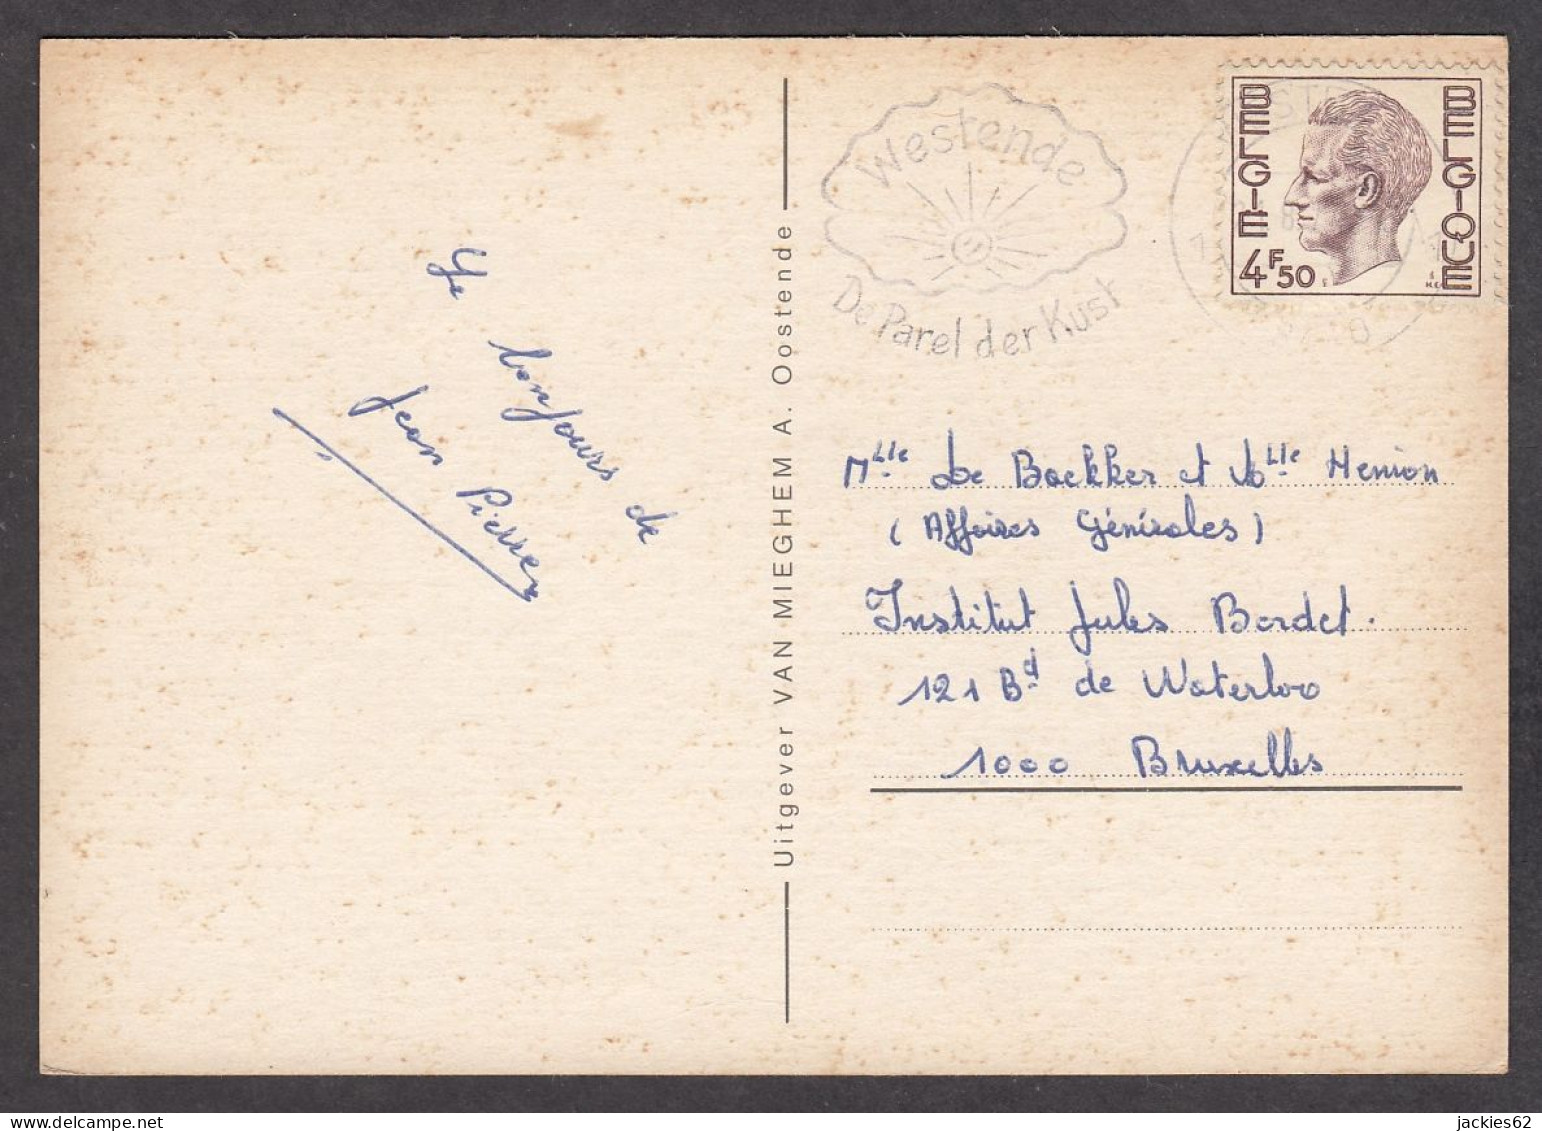 Le bonjours de
Jean Pierre
Uitgever VAN MIEGHEM A. Oostende
Westende
De Parel der Kust
BELGIE
BELGIQUE
4F50
Mlle De Backker et Mlle Henion
(Affaires Générales)
Institut Jules Bordet.
121 Bd de Waterloo
1000 Bruxelles
jackies62